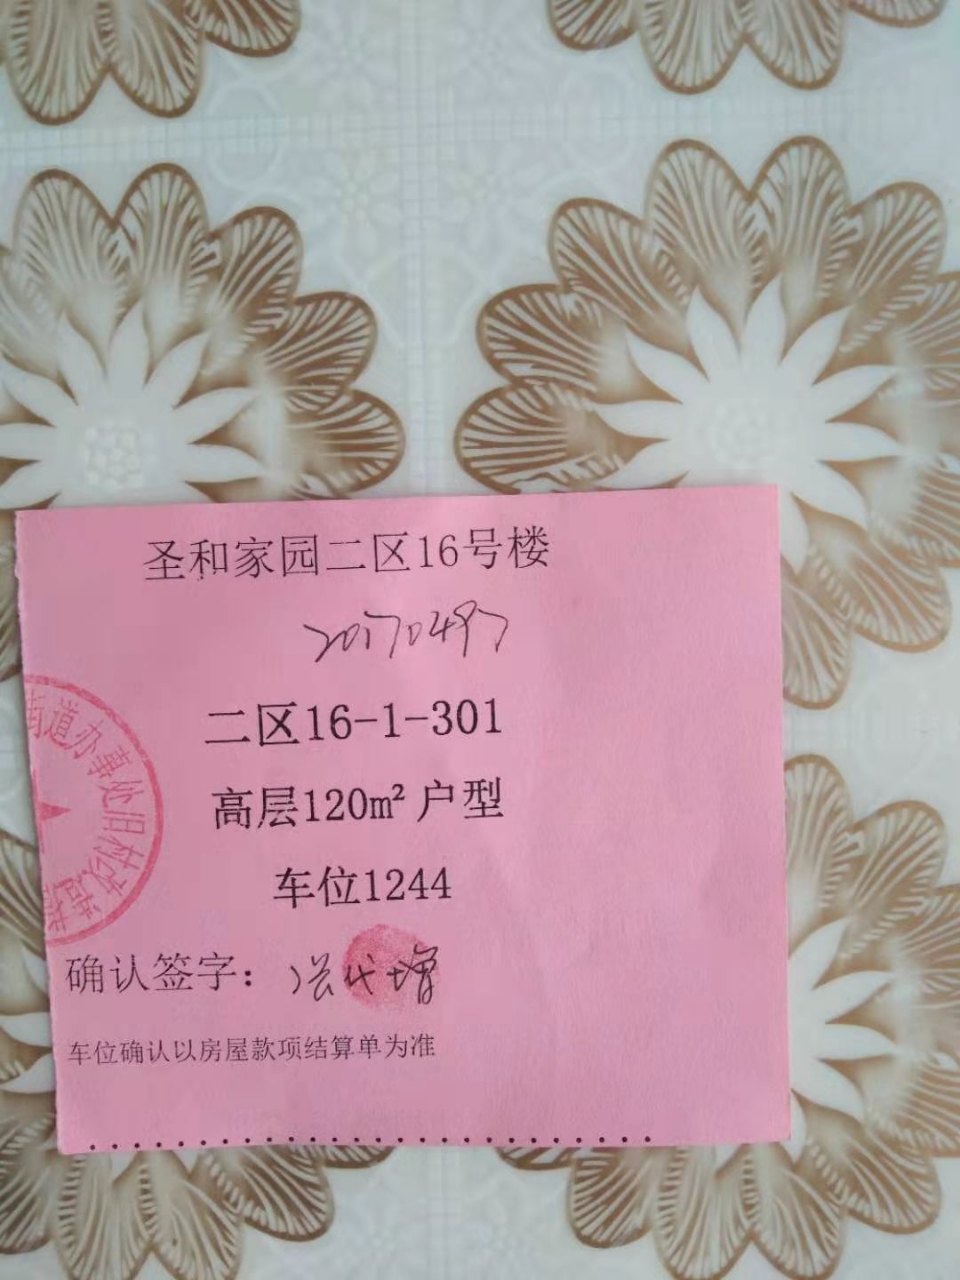 圣和家园二区16号楼
20170497
二区16-1-301
高层120m²户型
车位1244
街道办事处旧村改造指
确认签字：
代增
车位确认以房屋款项结算单为准